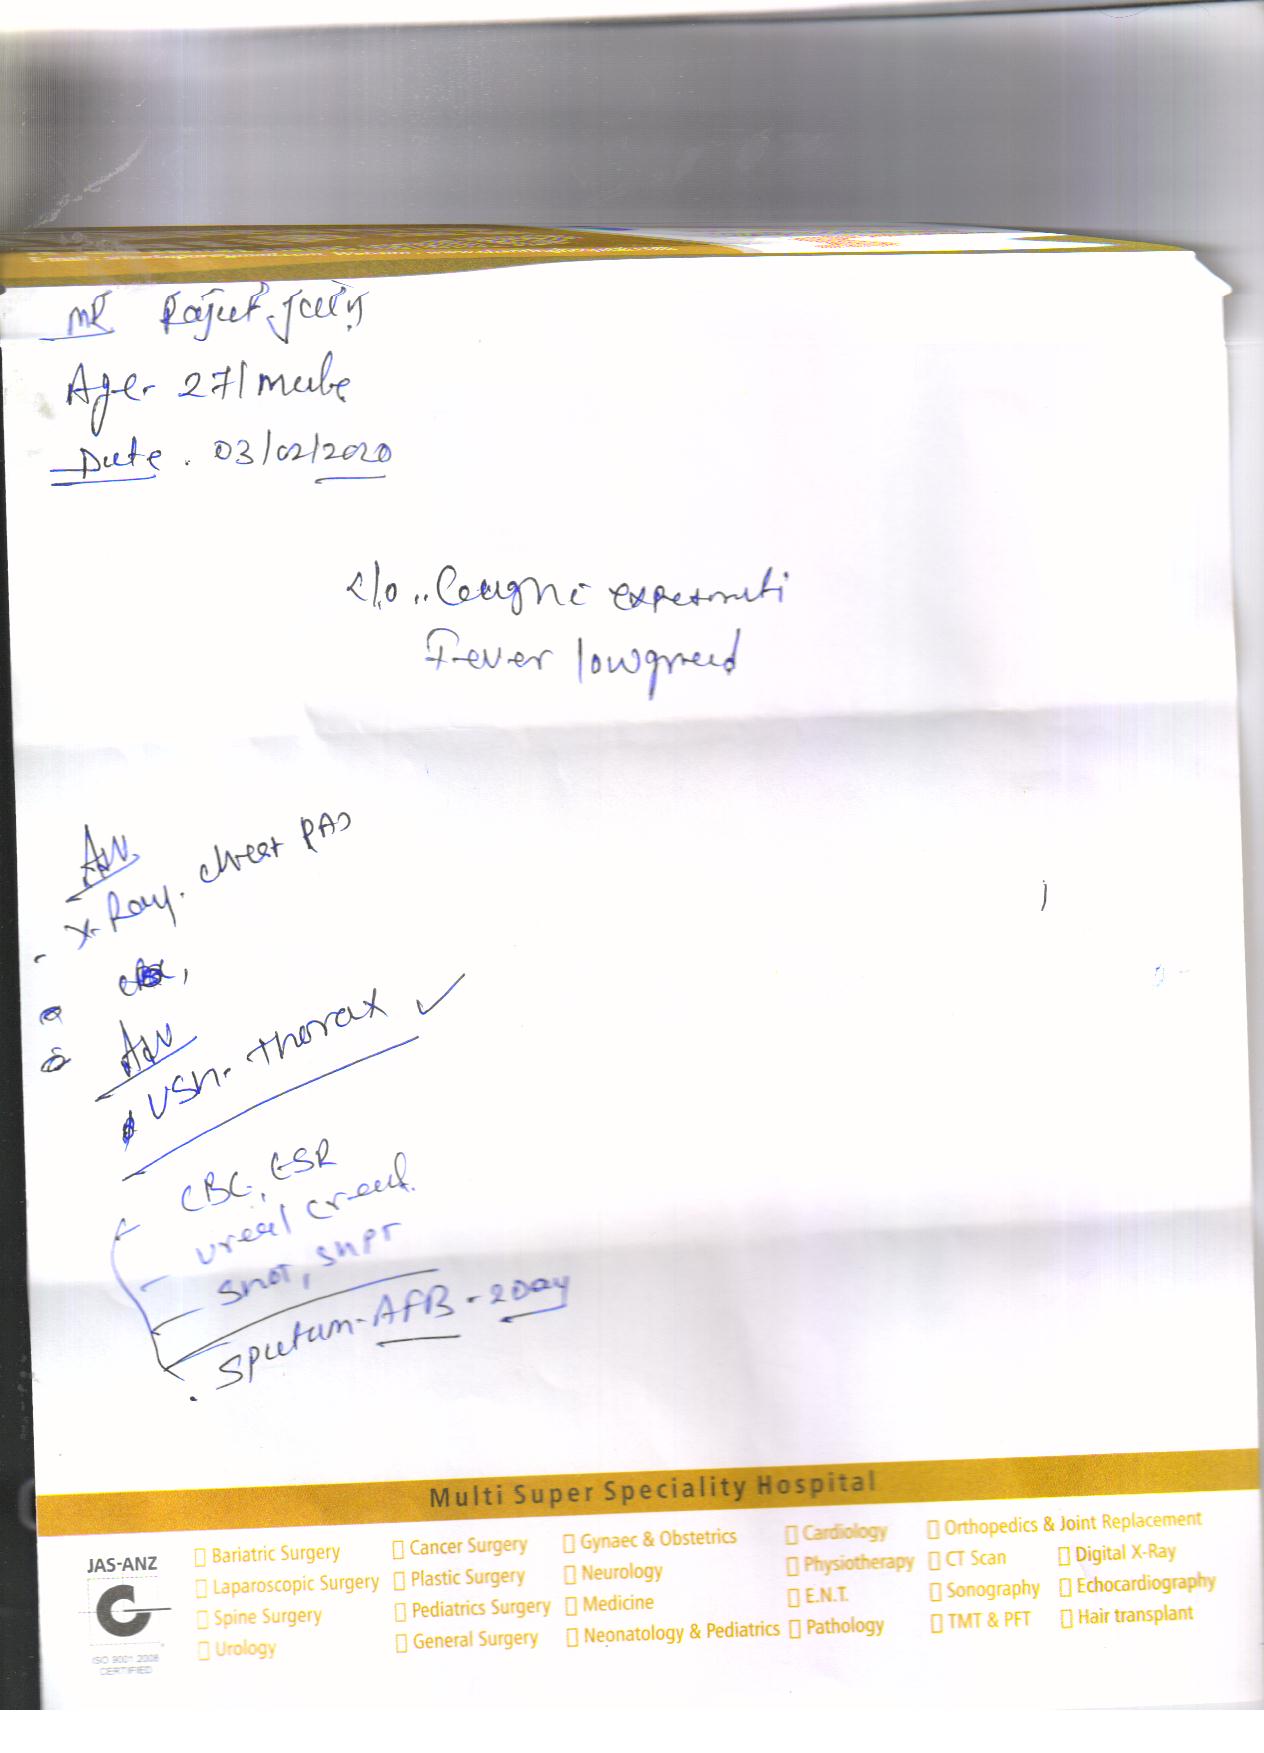 MR Rajut Jain
Age- 27/Male
Date. 03/02/2020
c/o .. Coughc expectorati
Fever lowgraed
Adv
- X-Ray. chest PA
Adv
USG- Thorax ✓
CBC, ESR
Urea/creat.
SGOT, SGPT
. Sputum-AFB-2Day
Multi Super Speciality Hospital
JAS-ANZ
ISO 9001 2008
CERTIFIED
Bariatric Surgery
Laparoscopic Surgery
Spine Surgery
Urology
Cancer Surgery
Plastic Surgery
Pediatrics Surgery
General Surgery
Gynaec & Obstetrics
Neurology
Medicine
Neonatology & Pediatrics
Cardiology
Physiotherapy
E.N.T.
Pathology
Orthopedics & Joint Replacement
CT Scan
Sonography
TMT & PFT
Digital X-Ray
Echocardiography
Hair transplant